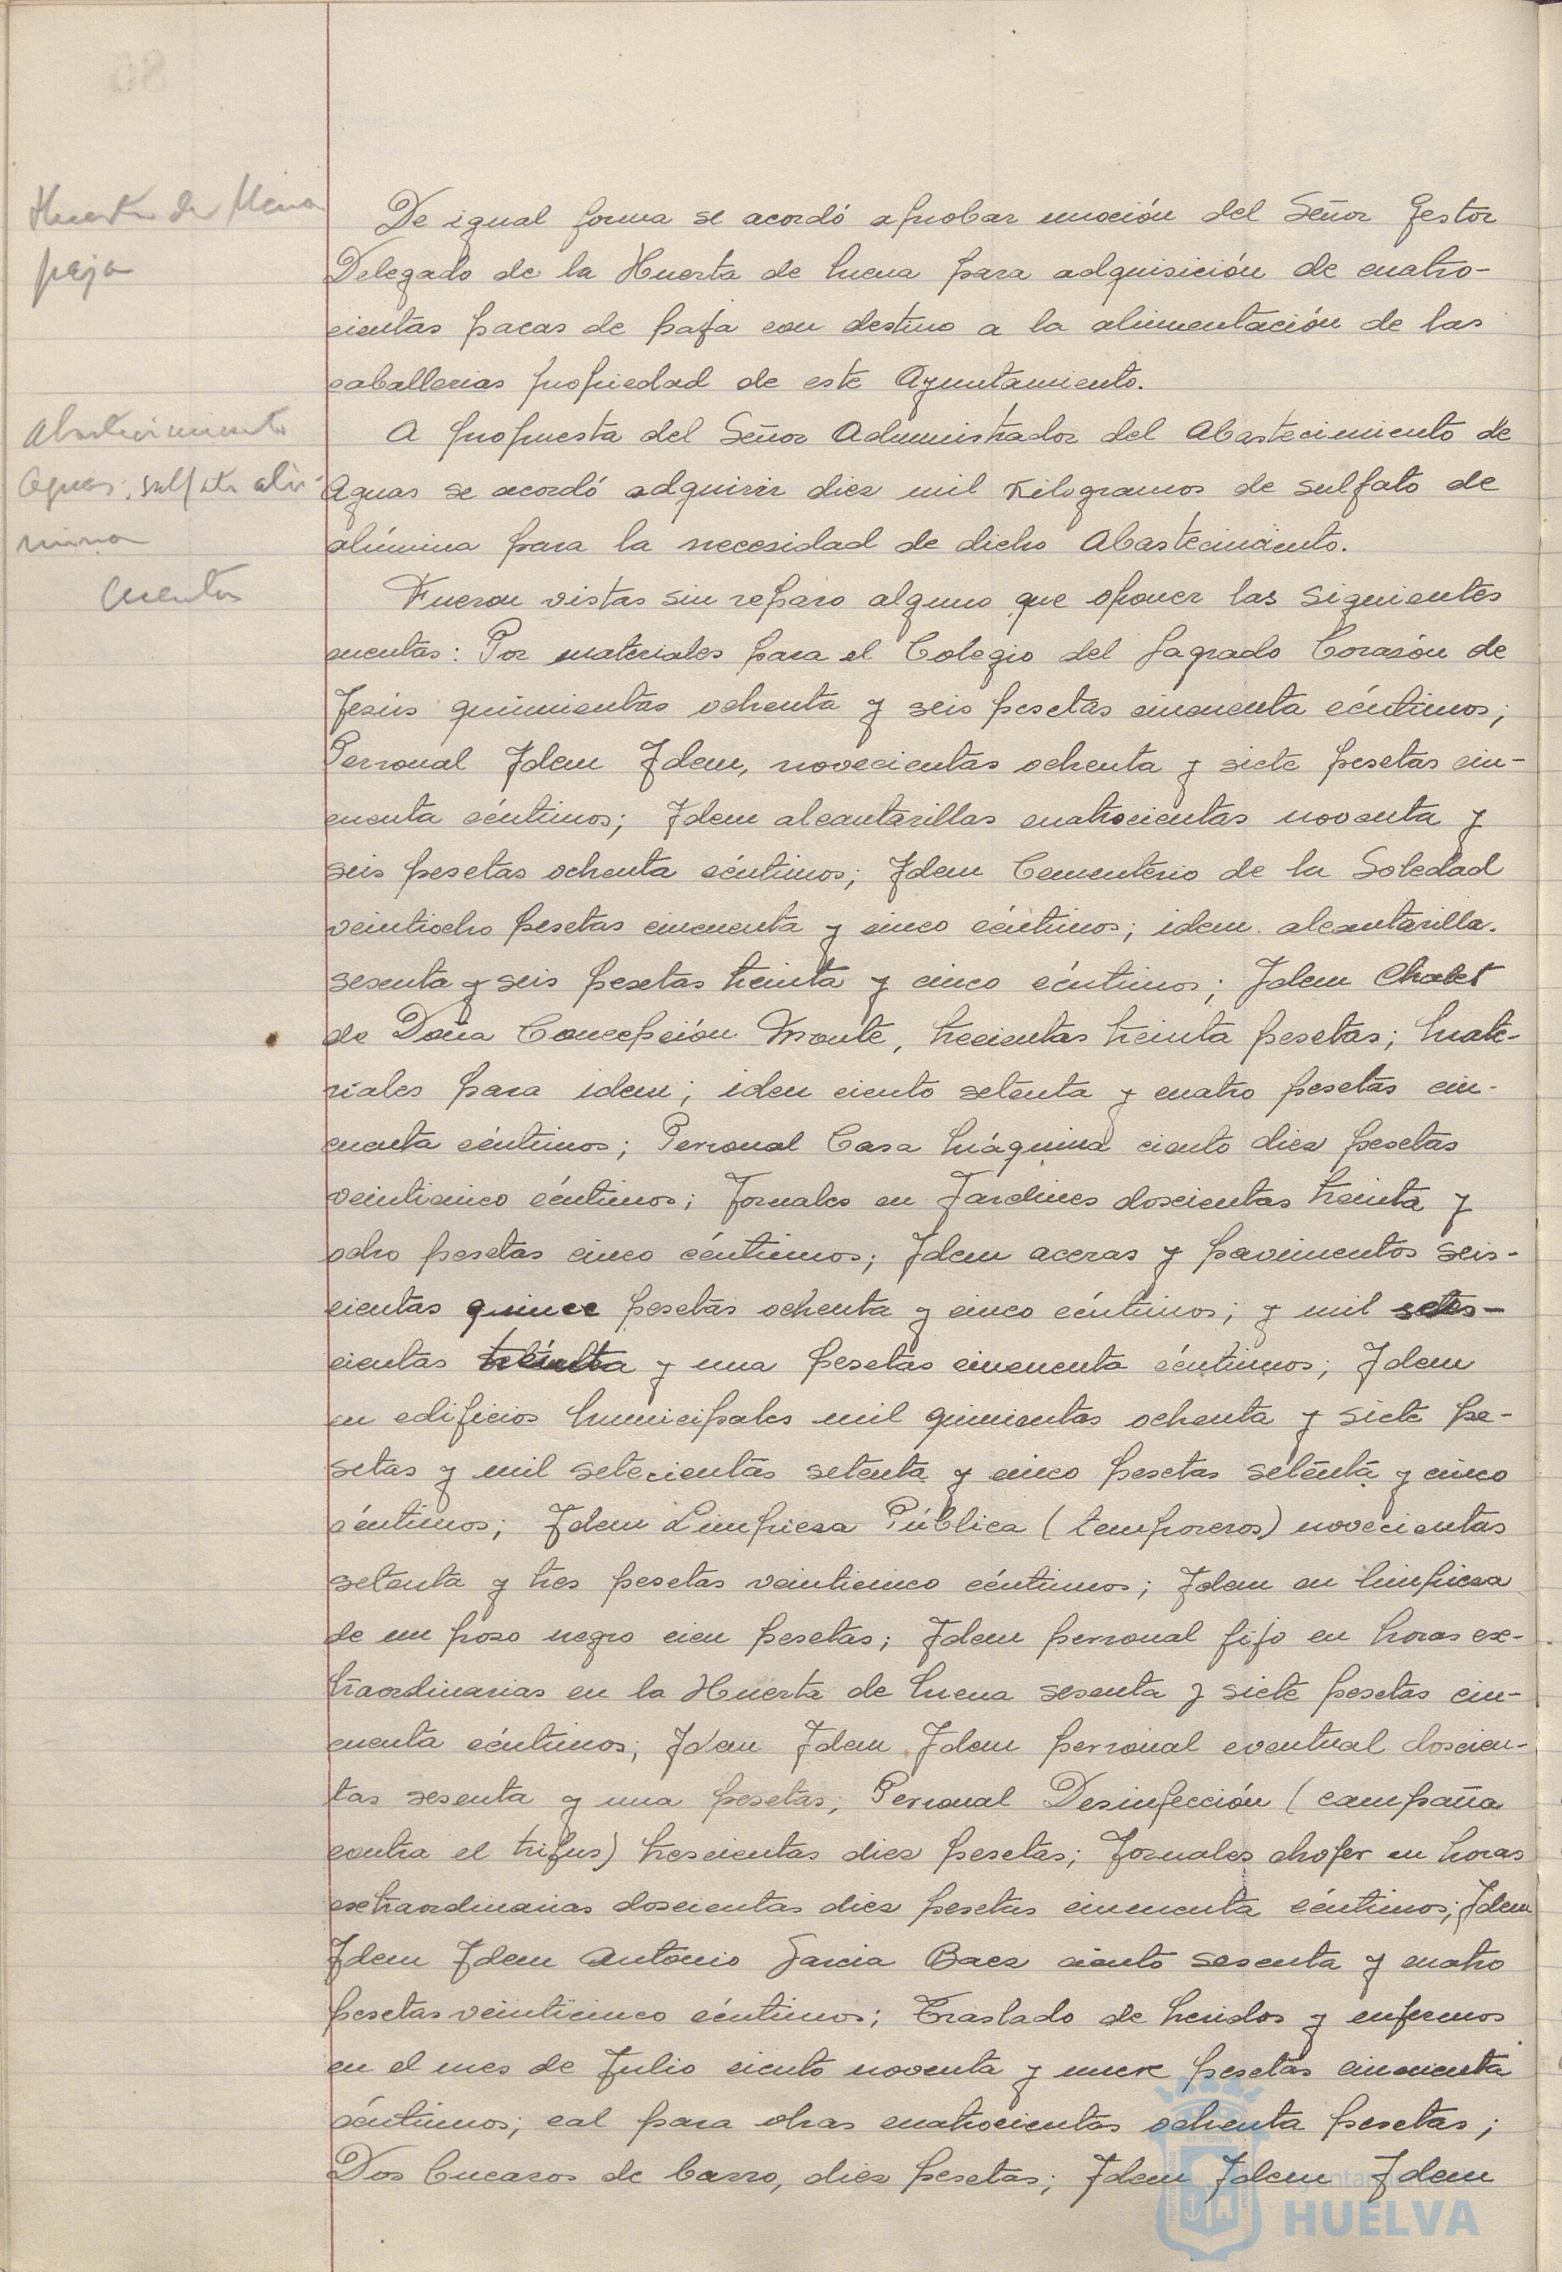 Huerta de Mena
paja
De igual forma se acordó aprobar moción del Señor Gestor
Delegado de la Huerta de Mena para adquisición de cuatro-
cientas pacas de paja con destino a la alimentación de las
caballerias propiedad de este Ayuntamiento.
Abastecimiento
Aguas. sulfato alú-
mina
A propuesta del Señor Administrador del Abastecimiento de
Aguas se acordó adquirir diez mil Kilogramos de sulfato de
alúmina para la necesidad de dicho Abastecimiento.
Cuentas
Fueron vistas sin reparo alguno que oponer las siguientes
cuentas: Por materiales para el Colegio del Sagrado Corazón de
Jesús quinientas ochenta y seis pesetas cincuenta céntimos;
Personal Idem Idem, novecientas ochenta y siete pesetas cin-
cuenta céntimos; Idem alcantarillas cuatrocientas noventa y
seis pesetas ochenta céntimos; Idem Cementerio de la Soledad
veintiocho pesetas cincuenta y cinco céntimos; idem alcantarilla.
sesenta y seis pesetas treinta y cinco céntimos; Idem Chalet
de Doña Concepción Monte, trecientas treinta pesetas; Mate-
riales para idem; iden ciento setenta y cuatro pesetas cin-
cuenta céntimos; Personal Casa Máquina ciento diez pesetas
veinticinco céntimos; Jornales en Jardines doscientas treinta y
ocho pesetas cinco céntimos; Idem aceras y pavimentos seis-
cientas quince pesetas ochenta y cinco céntimos; y mil setes-
cientas treinta y una pesetas cincuenta céntimos; Idem
en edificios Municipales mil quinientas ochenta y siete pe-
setas y mil setecientas setenta y cinco pesetas setenta y cinco
céntimos; Idem Limpieza Pública (temporeros) novecientas
setenta y tres pesetas veinticinco céntimos; Idem en limpieza
de un pozo negro cien pesetas; Idem personal fijo en horas ex-
traordinarias en la Huerta de Mena sesenta y siete pesetas cin-
cuenta céntimos; Idem Idem Idem personal eventual doscien-
tas sesenta y una pesetas; Personal Desinfección (campaña
contra el trifus) trescientas diez pesetas; Jornales chofer en horas
extraordinarias doscientas diez pesetas cincuenta céntimos; Idem
Idem Idem Antonio Garcia Baez ciento sesenta y cuatro
pesetas veinticinco céntimos; Traslado de heridos y enfermos
en el mes de Julio ciento noventa y nueve pesetas cincuenta
céntimos; cal para obras cuatrocientas ochenta pesetas;
Dos Bucaros de barro, diez pesetas; Idem Idem Idem
Ayuntamiento de
HUELVA